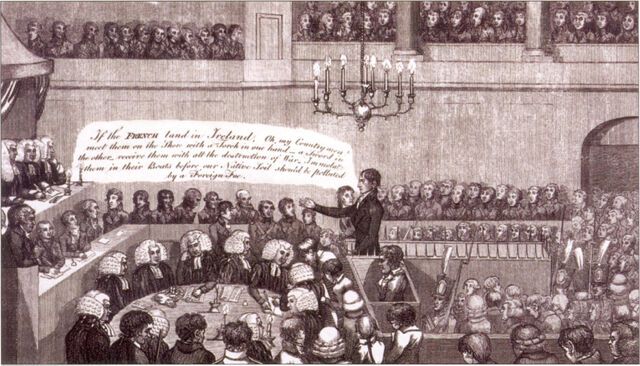 If the FRENCH land in Ireland, Oh my Countrymen
meet them on the Shore with a Torch in one hand – a Sword in
the other – receive them with all the destruction of War, Immolate
them in their Boats before our Native Soil should be polluted
by a Foreign Foe.